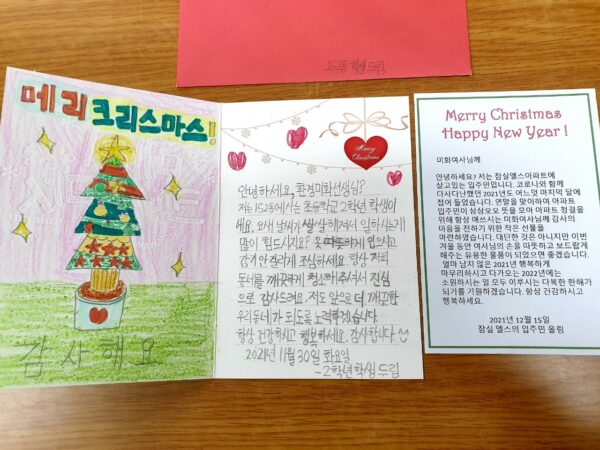 152동 학생 드림
메리 크리스마스!
감사해요
Merry Christmas
안녕하세요, 환경미화선생님?
저는 152동에서는 초등학교 2학년 학생이
에요. 요새 날씨가 쌀쌀해져서 일하시는게
많이 힘드시지요? 옷 따뜻하게 입으시고
감기 안 걸리게 조심하세요. 항상 저희
동네를 깨끗하게 청소해주셔서 진심
으로 감사드려요. 저도 앞으로 더 깨끗한
우리동네가 되도록 노력할게요.
항상 건강하시고 행복하세요. 감사합니다.
2021년 11월 30일 화요일
-2학년 학생 드림
Merry Christmas
Happy New Year !
미화여사님께
안녕하세요? 저는 잠실엘스아파트에
살고있는 입주민입니다. 코로나와 함께
다사다난했던 2021년도 어느덧 마지막 달에
접어 들었습니다. 연말을 맞이하여 아파트
입주민이 삼삼오오 뜻을 모아 아파트 청결을
위해 항상 애쓰시는 미화여사님께 감사의
마음을 전하기 위한 작은 선물을
마련하였습니다. 대단한 것은 아니지만 이번
겨울 동안 여사님의 손을 따뜻하고 보드랍게
해주는 유용한 물품이 되었으면 좋겠습니다.
얼마 남지 않은 2021년 행복하게
마무리하시고 다가오는 2022년에는
소원하시는 일 모두 이루시는 다복한 한해가
되기를 기원하겠습니다. 항상 건강하시고
행복하세요.
2021년 12월 15일
잠실 엘스의 입주민 올림